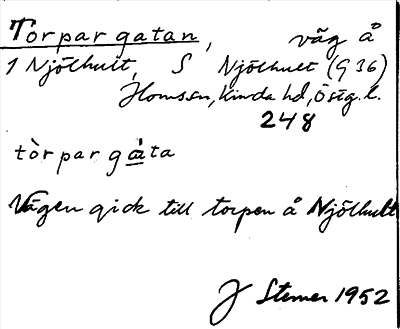 Torpargatan, väg å
1 Njölhult, S Njölhult (G 36)
Hommsn, Kinda hd, Östg. l.
248
tòrpargá̤ta
Vägen gick till torpen å Njölhult
J Stemer 1952